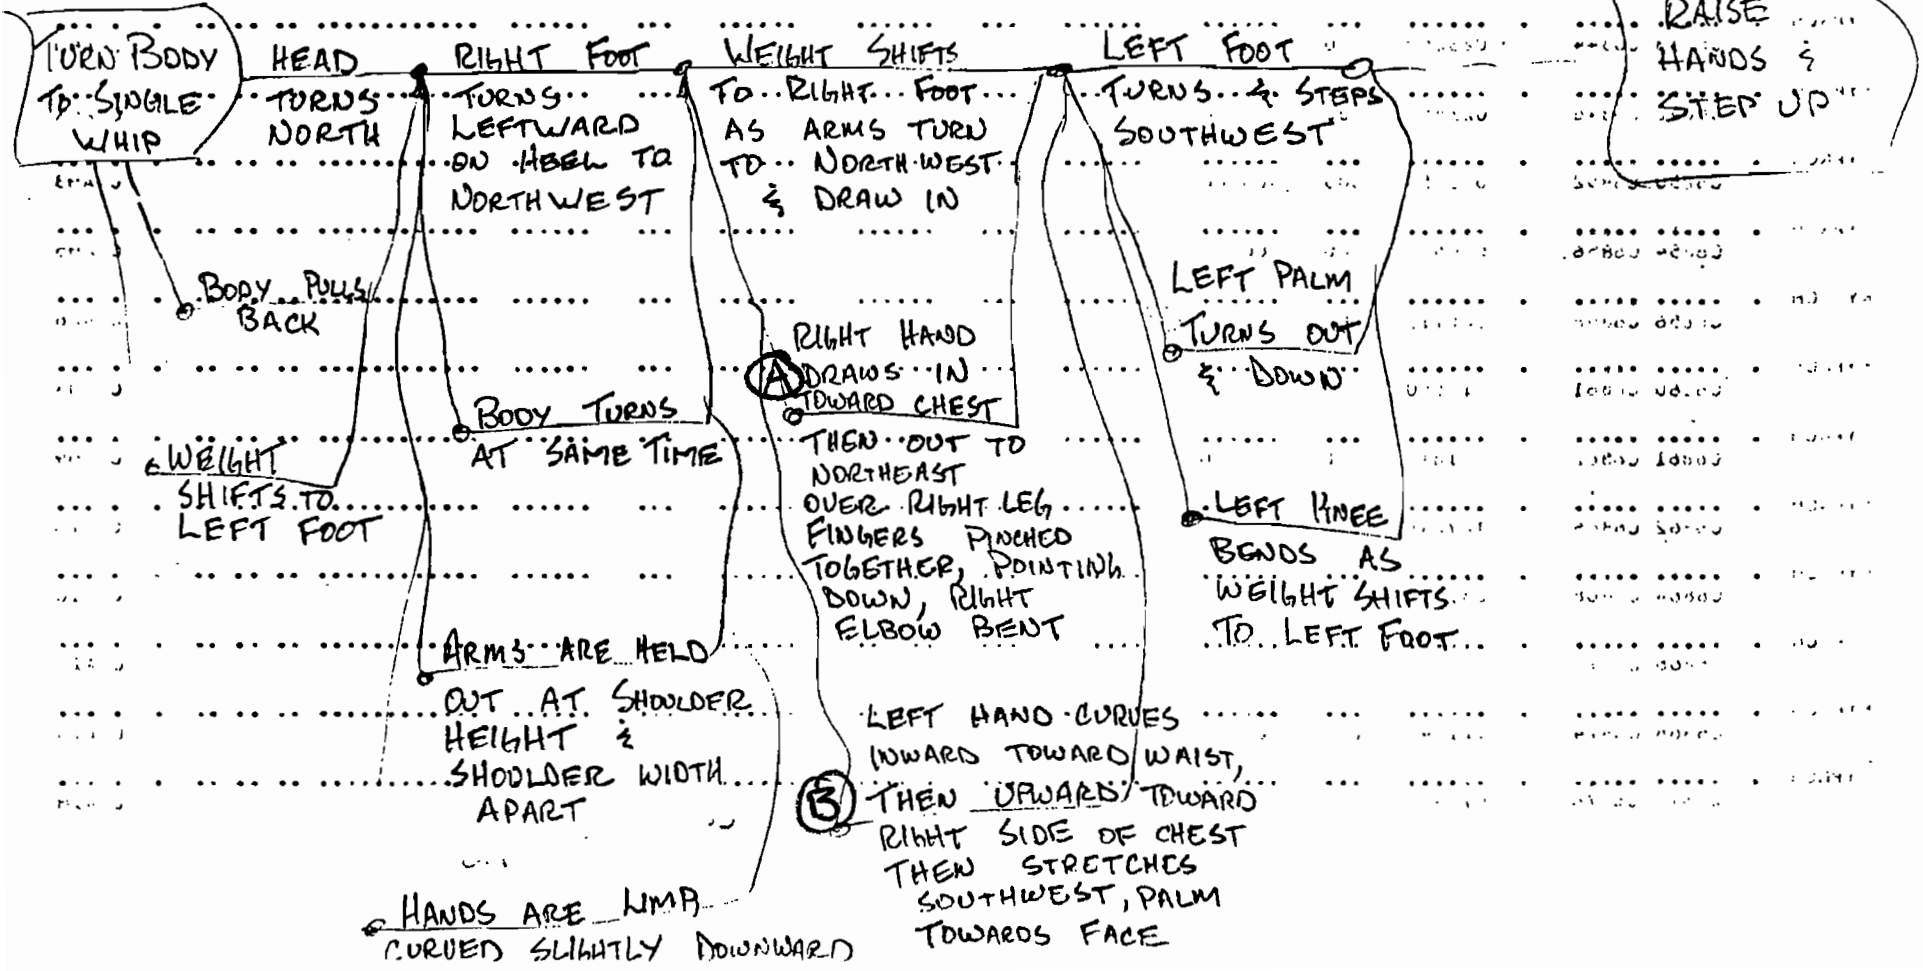 TURN BODY
TO SINGLE
WHIP
HEAD
TURNS
NORTH
RIGHT FOOT
TURNS
LEFTWARD
ON HEEL TO
NORTHWEST
WEIGHT SHIFTS
TO RIGHT FOOT
AS ARMS TURN
TO NORTHWEST
& DRAW IN
LEFT FOOT
TURNS & STEPS
SOUTHWEST
RAISE
HANDS &
STEP UP
BODY PULLS
BACK
WEIGHT
SHIFTS TO
LEFT FOOT
BODY TURNS
AT SAME TIME
ARMS ARE HELD
OUT AT SHOULDER
HEIGHT &
SHOULDER WIDTH
APART
HANDS ARE LIMP,
CURVED SLIGHTLY DOWNWARD
A
RIGHT HAND
DRAWS IN
TOWARD CHEST
THEN OUT TO
NORTHEAST
OVER RIGHT LEG
FINGERS PINCHED
TOGETHER, POINTING
DOWN, RIGHT
ELBOW BENT
B
LEFT HAND CURVES
INWARD TOWARD WAIST,
THEN UPWARD TOWARD
RIGHT SIDE OF CHEST
THEN STRETCHES
SOUTHWEST, PALM
TOWARDS FACE
LEFT PALM
TURNS OUT
& DOWN
LEFT KNEE
BENDS AS
WEIGHT SHIFTS
TO LEFT FOOT